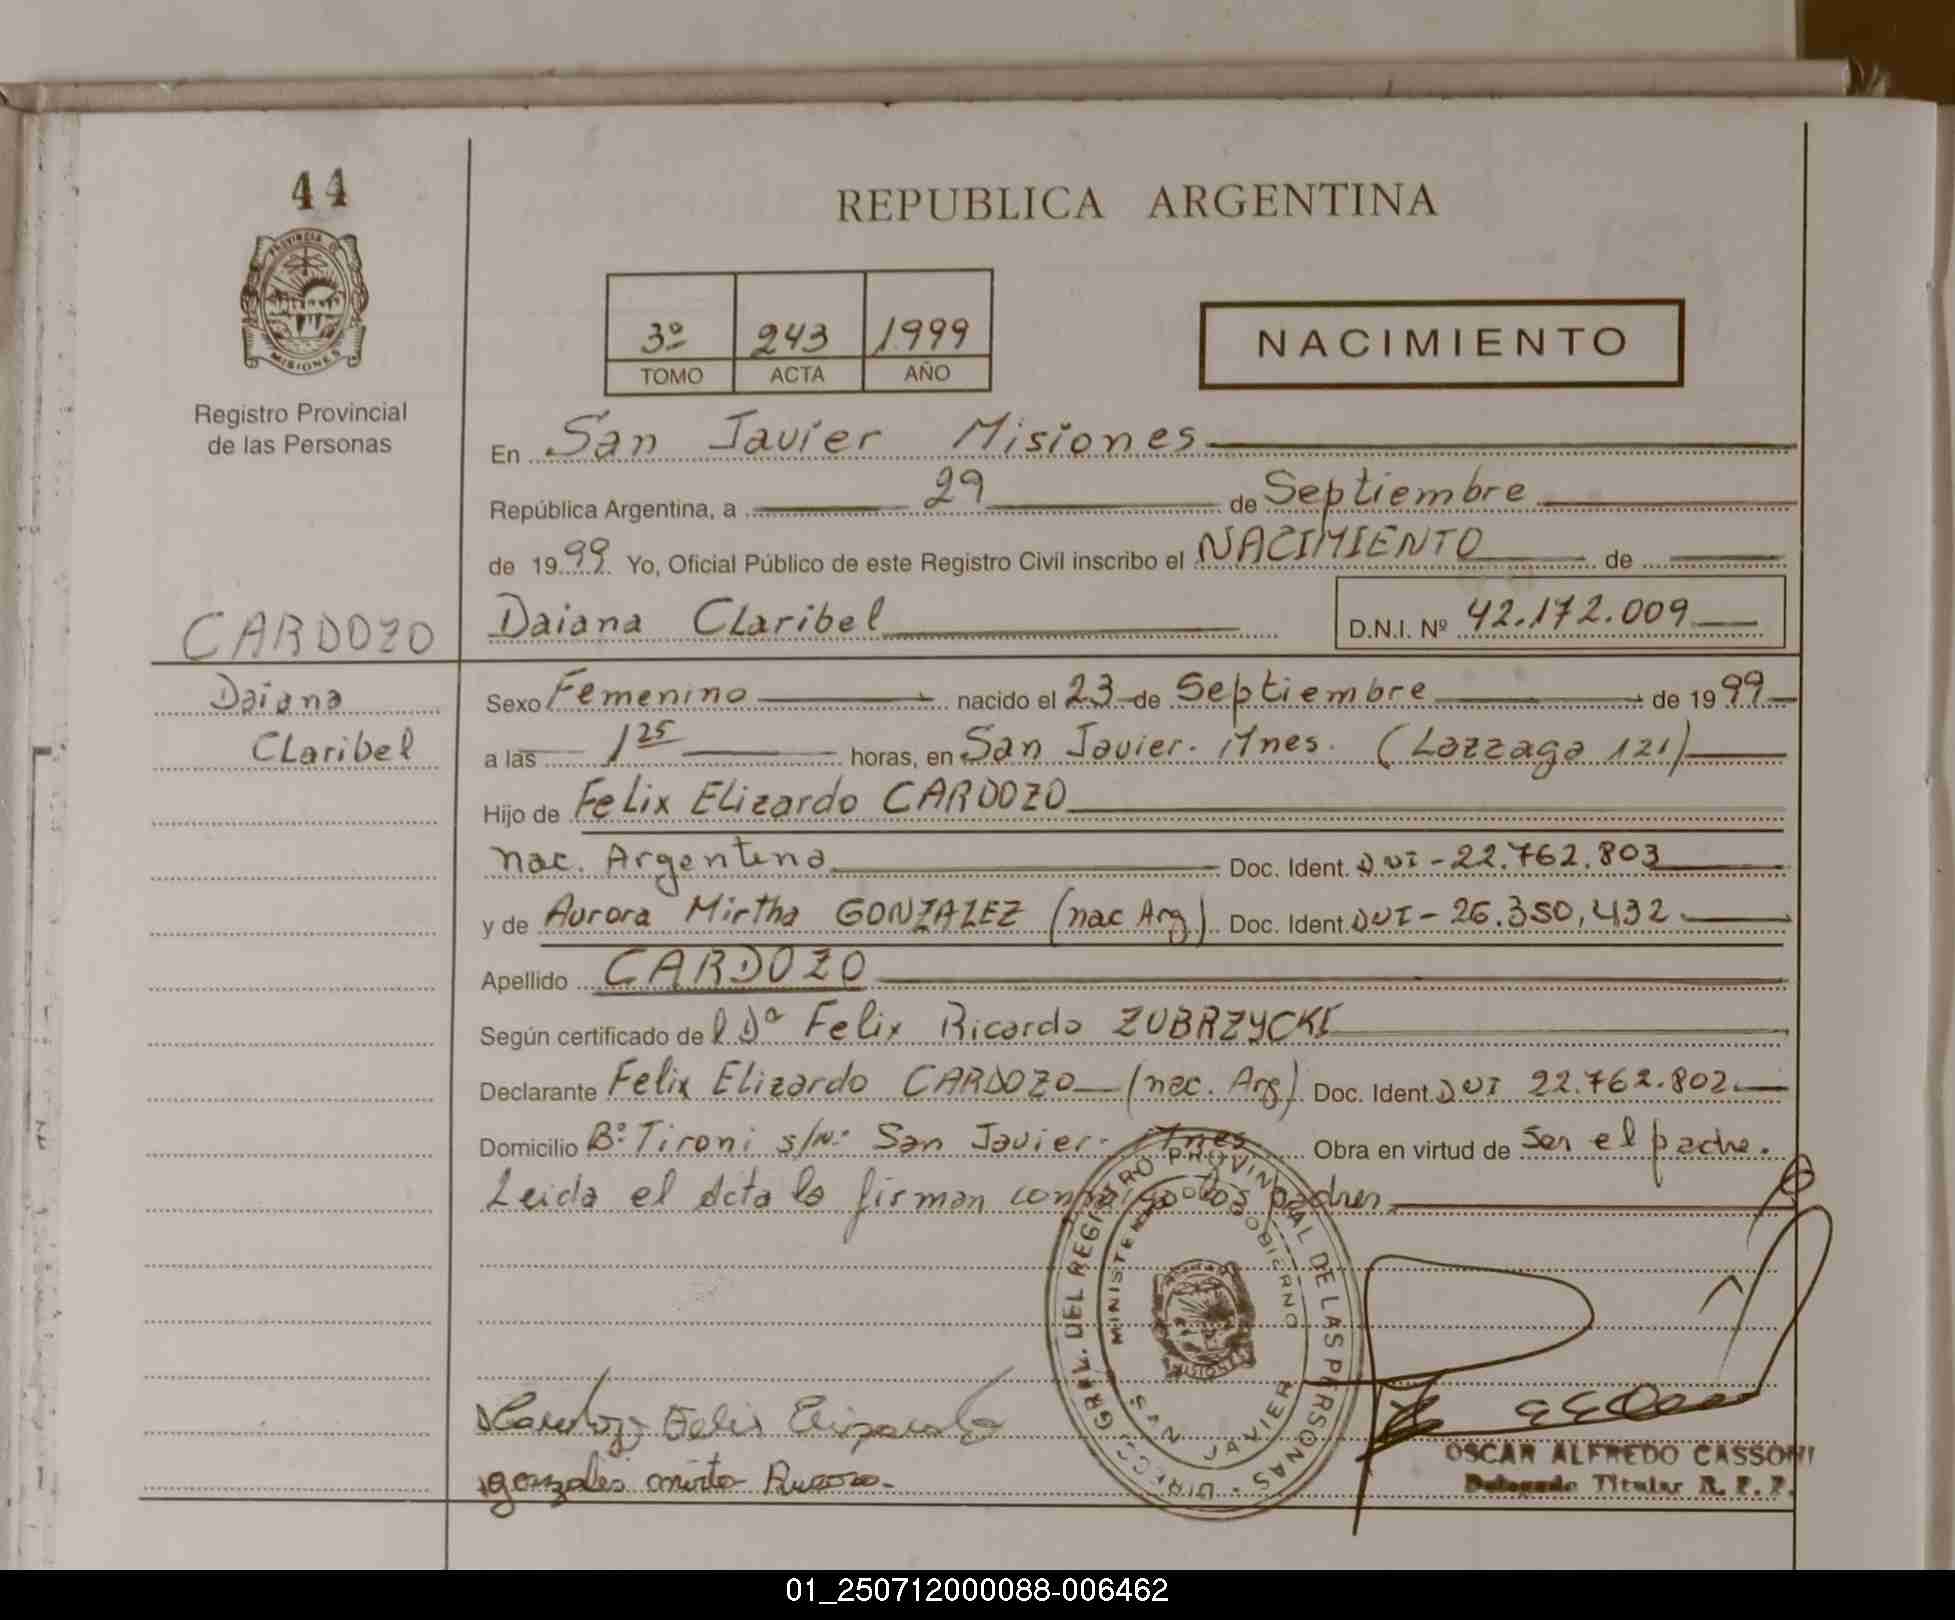 44
PROVINCIA DE
MISIONES
Registro Provincial
de las Personas
REPUBLICA ARGENTINA
3º 243 1999
TOMO ACTA AÑO
NACIMIENTO
En San Javier Misiones
República Argentina, a 29 de Septiembre
de 1999 Yo, Oficial Público de este Registro Civil inscribo el NACIMIENTO de
CARDOZO
Daiana Claribel
D.N.I. Nº 42.172.009
Daiana
Claribel
Sexo Femenino nacido el 23 de Septiembre de 1999
a las 1 25 horas, en San Javier. Mnes. (Lazzaga 121)
Hijo de Felix Elizardo CARDOZO
nac. Argentina Doc. Ident. DNI - 22.762.803
y de Aurora Mirtha GONZALEZ (nac Arg) Doc. Ident. DNI - 26.350,432
Apellido CARDOZO
Según certificado de l Dº Felix Ricardo ZUBRZYCKI
Declarante Felix Elizardo CARDOZO (nac. Arg) Doc. Ident. DNI 22.762.802
Domicilio Bº Tironi s/Nº San Javier. Mnes Obra en virtud de Ser el padre.
Leida el Acta la firman conmigo los padres
DIRECC. GRAL. DEL REGISTRO PROVINCIAL DE LAS PERSONAS
MINISTERIO DE GOBIERNO
MISIONES
SAN JAVIER
Cardozo Felix Elizardo
gonzales mirta Aurora.
OSCAR ALFREDO CASSONI
Delegado Titular R. P. P.
01_250712000088-006462